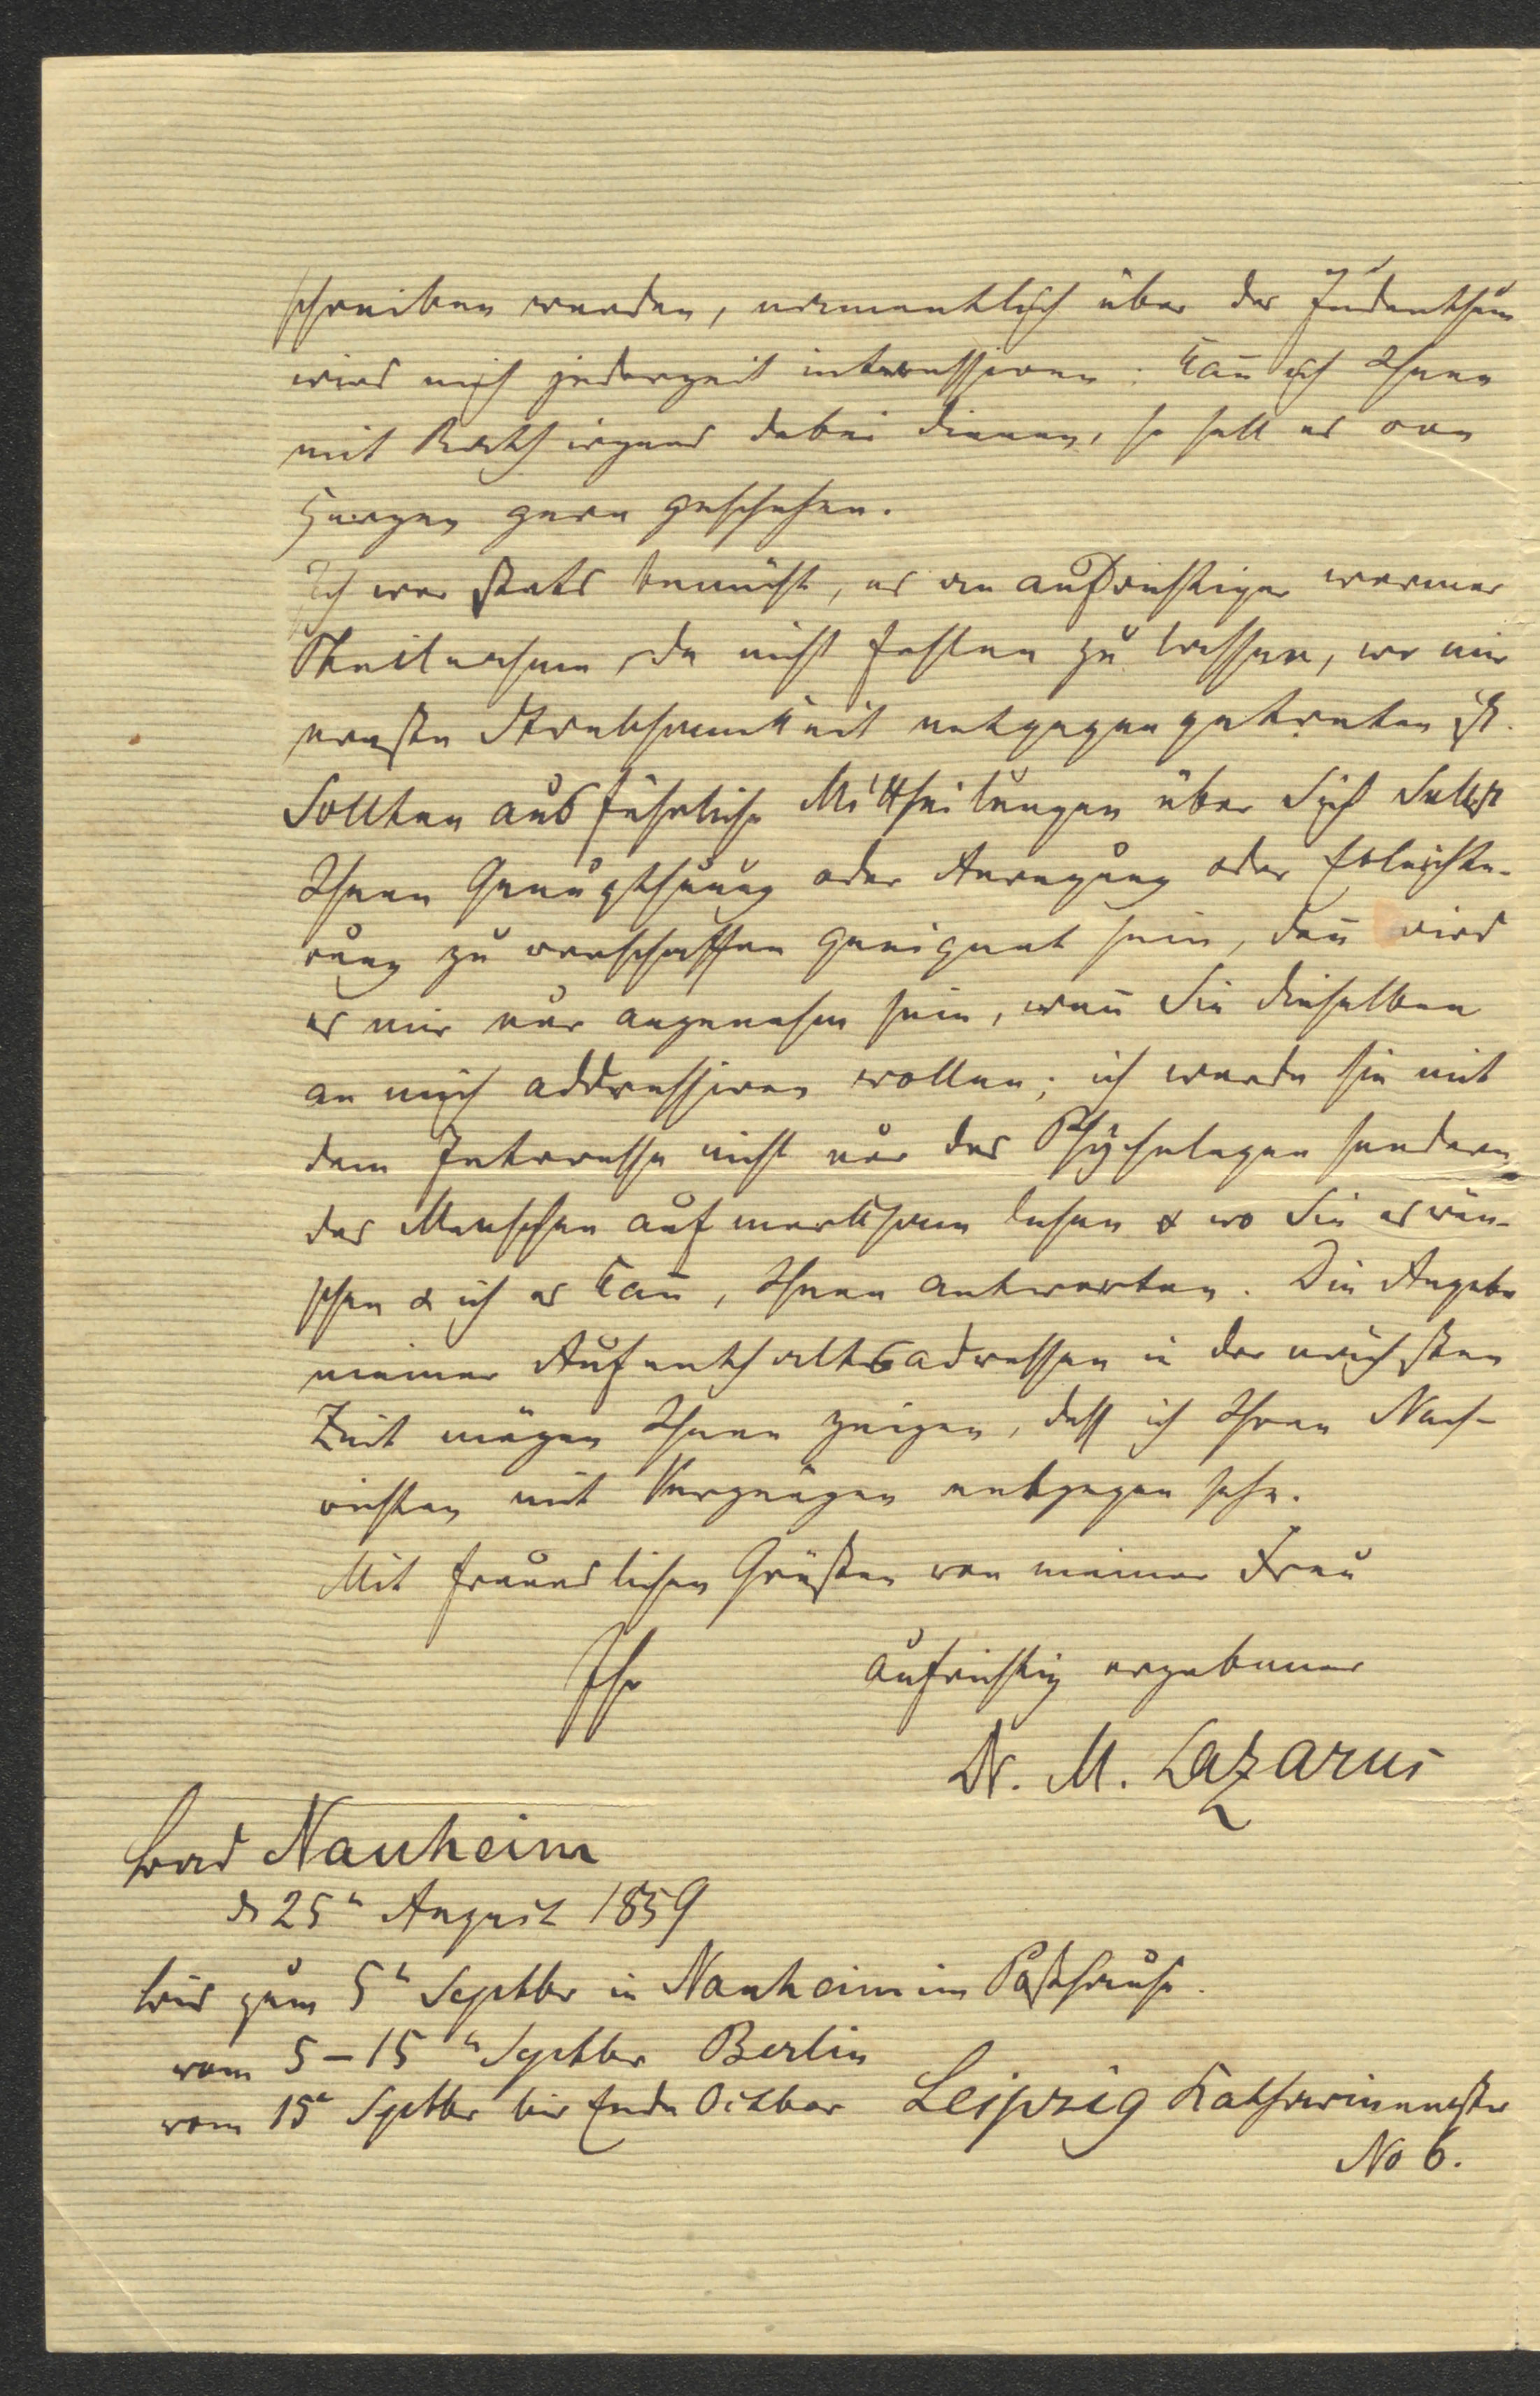 schreiben werden, namentlich über das Judenthum
wird mich jederzeit interessiren; kan̄ ich Ihnen
mit Rath irgend dabei dienen, so soll es von
Herzen gern geschehen.
Ich war stets bemüht, es an aufrichtiger warmer
Theilnahme da nicht fehlen zu lassen, wo mir
ernste Strebsamkeit entgegengetreten ist.
Sollten ausführliche Mittheilungen über Sich Selbst
Ihnen Genugthuung oder Anregung oder Erleichte-
rung zu verschaffen geeignet sein, dan̄ wird
es mir nur angenehm sein, wen̄ Sie dieselben
an mich addressiren wollen; ich werde sie mit
dem Interesse nicht nur des Psychologen sondern
des Menschen aufmerksam lesen & wo Sie es wün-
schen & ich es kan̄, Ihnen antworten. Die Angabe
meiner Aufenthaltsadressen in der nächsten
Zeit mögen Ihnen zeigen, daß ich Ihren Nach-
richten mit Vergnügen entgegen sehe.
Mit freundlichen Grüßen von meiner Frau
Ihr aufrichtig ergebener
Dr. M. Lazarus
Bad Nauheim
d 25n August 1859
bis zum 5n Septbr in Nauheim im Posthause.
vom 5–15n Septbr Berlin
vom 15n Septbr bis Ende Octber Leipzig Katharinenstr
No 6.